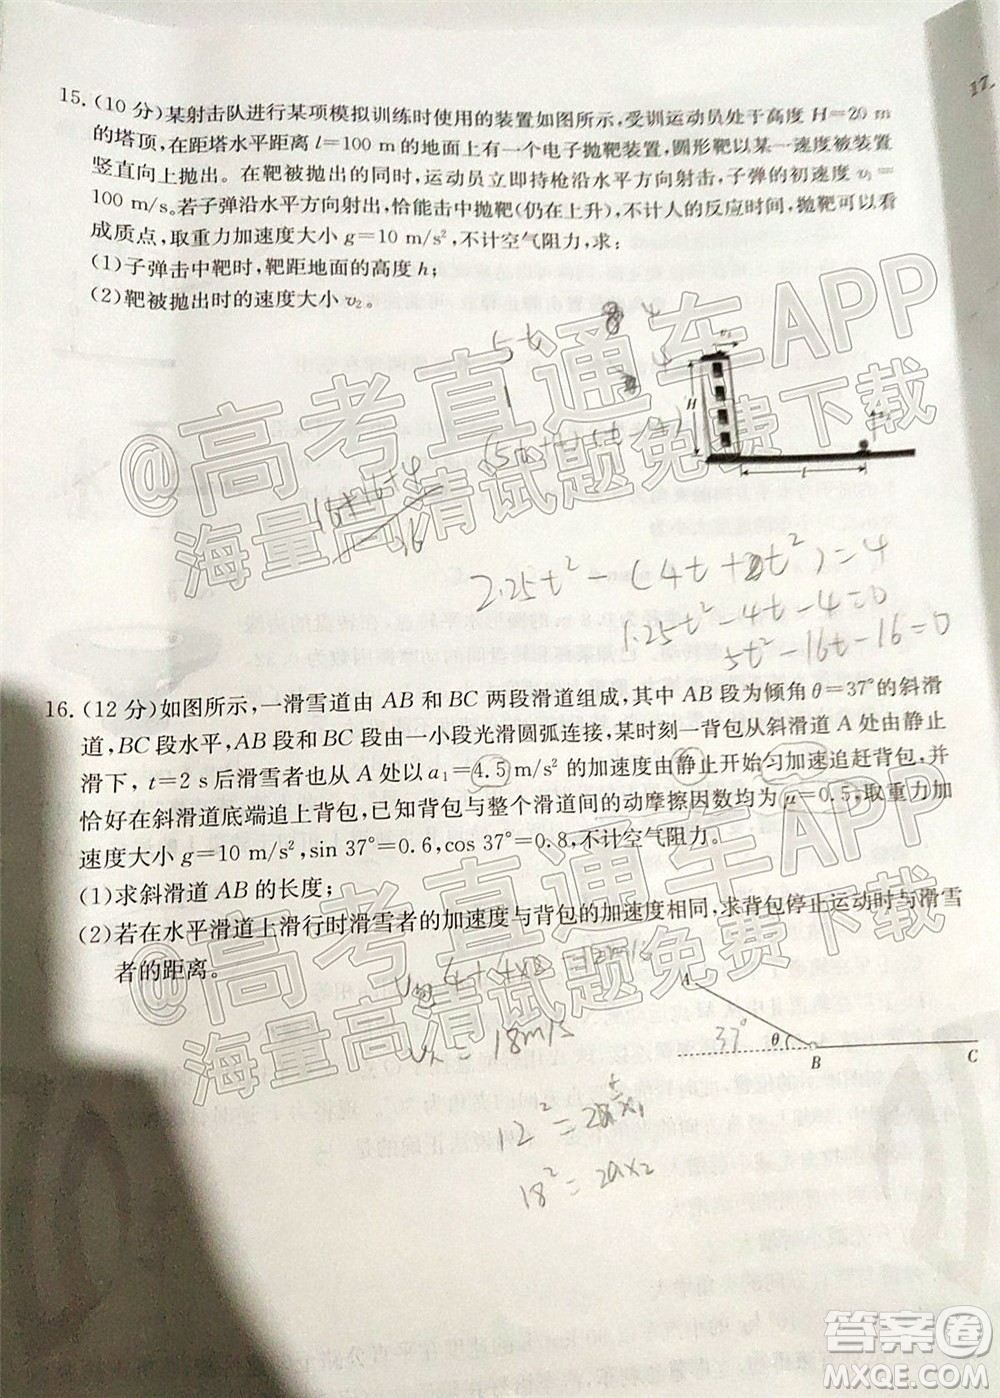 17.
15.(10 分)某射击队进行某项模拟训练时使用的装置如图所示,受训运动员处于高度 H=20 m
的塔顶,在距塔水平距离 l=100 m 的地面上有一个电子抛靶装置,圆形靶以某一速度被装置
竖直向上抛出。在靶被抛出的同时,运动员立即持枪沿水平方向射击,子弹的初速度 v₁=
100 m/s。若子弹沿水平方向射出,恰能击中抛靶(仍在上升),不计人的反应时间,抛靶可以看
成质点,取重力加速度大小 g=10 m/s²,不计空气阻力,求:
(1)子弹击中靶时,靶距地面的高度 h;
(2)靶被抛出时的速度大小 v₂。
H
l
2.25t² - (4t + 2t²) = 4
1.25t² - 4t - 4 = 0
5t² - 16t - 16 = 0
16.(12 分)如图所示,一滑雪道由 AB 和 BC 两段滑道组成,其中 AB 段为倾角 θ=37°的斜滑
道,BC 段水平,AB 段和 BC 段由一小段光滑圆弧连接,某时刻一背包从斜滑道 A 处由静止
滑下,t=2 s 后滑雪者也从 A 处以 a₁=4.5 m/s² 的加速度由静止开始匀加速追赶背包,
恰好在斜滑道底端追上背包,已知背包与整个滑道间的动摩擦因数均为 μ=0.5,取重力加
速度大小 g=10 m/s²,sin 37°=0.6,cos 37°=0.8,不计空气阻力。
(1)求斜滑道 AB 的长度;
(2)若在水平滑道上滑行时滑雪者的加速度与背包的加速度相同,求背包停止运动时与滑雪
者的距离。
= 12m/s
= 18m/s
A
37°
θ
B
C
18² = 2ax2
@高考直通车APP
海量高清试题免费下载
@高考直通车APP
海量高清试题免费下载
答案卷
MXQE.COM